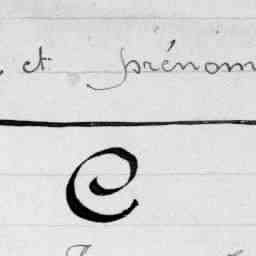 et prénom
C